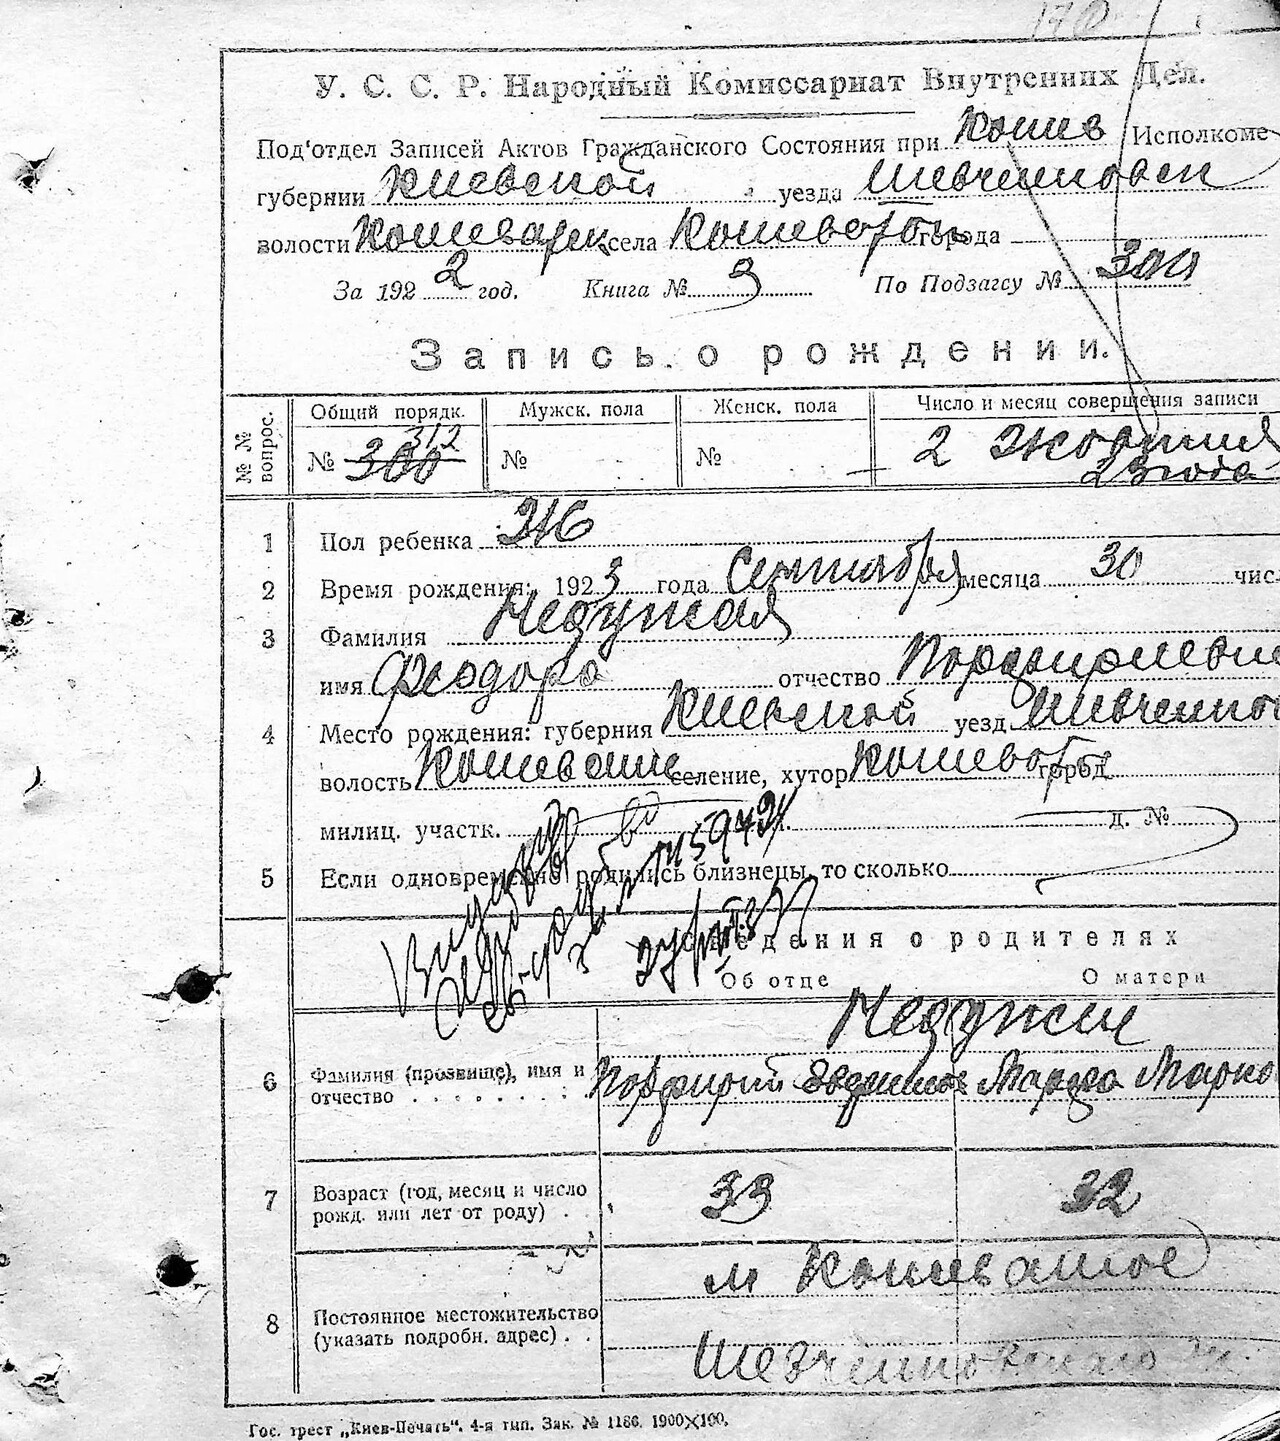 У. С. С. Р. Народный Комиссариат Внутренних Дел.
Под'отдел Записей Актов Гражданского Состояния при Кошев Исполкоме
губернии Киевской уезда Шевченковск
волости села города
За 1922 год. Книга № 3 По Подзагсу №
Запись о рождении.
№№ вопрос.
Общий порядк. Мужск. пола Женск. пола Число и месяц совершения записи
312
№ 300 № № 2 Жовтня
23 года
1 Пол ребенка Ж
2 Время рождения: 1923 года Сентября месяца 30 чис
3 Фамилия Недужая
имя Феодора отчество Порфириевна
4 Место рождения: губерния Киевской уезд Шевченков
волость селение, хутор город
милиц. участк. д. №
5 Если одновременно родились близнецы, то сколько
Сведения о родителях
Об отце О матери
Недужии
6 Фамилия (прозвище), имя и
отчество Порфирий Марфа Марко
7 Возраст (год, месяц и число
рожд. или лет от роду) 33 32
м Кошеватое
8 Постоянное местожительство
(указать подробн. адрес)
Шевченковскаго
Гос. трест „Киев-Печать“. 4-я тип. Зак. № 1186. 1900×100.